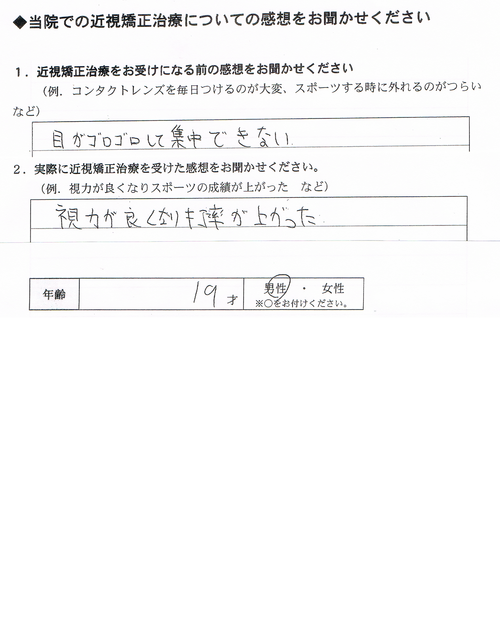 ◆当院での近視矯正治療についての感想をお聞かせください
１．近視矯正治療をお受けになる前の感想をお聞かせください
（例．コンタクトレンズを毎日つけるのが大変、スポーツする時に外れるのがつらい
など）
目がゴロゴロして集中できない
２．実際に近視矯正治療を受けた感想をお聞かせください。
（例．視力が良くなりスポーツの成績が上がった　など）
視力が良くなり打率が上がった
年齢 19才 男性 ・ 女性
※○をお付けください。